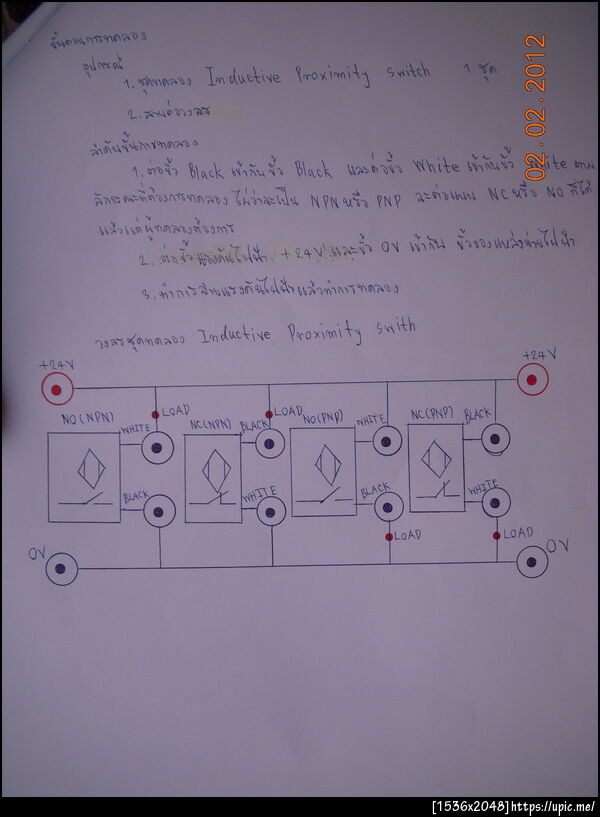 ขั้นตอนการทดลอง
อุปกรณ์
1. ชุดทดลอง Inductive Proximity switch 1 ชุด
2. สายต่อวงจร
ลำดับขั้นการทดลอง
1. ต่อขั้ว Black เข้ากับขั้ว Black และต่อขั้ว White เข้ากับขั้ว White ตาม
ลักษณะที่ต้องการทดลอง ไม่ว่าจะเป็น NPN หรือ PNP จะต่อแบบ NC หรือ NO ก็ได้
แล้วแต่ผู้ทดลองต้องการ
2. ต่อขั้วแรงดันไฟฟ้า +24V และขั้ว 0V เข้ากับ ขั้วของแหล่งจ่ายไฟฟ้า
3. ทำการจ่ายแรงดันไฟฟ้าแล้วทำการทดลอง
วงจรชุดทดลอง Inductive Proximity swith
+24V +24V
LOAD LOAD
NO(NPN) WHITE NC(NPN) BLACK NO(PNP) WHITE NC(PNP) BLACK
BLACK WHITE BLACK WHITE
LOAD LOAD
0V 0V
02.02.2012
[1536x2048]https://upic.me/